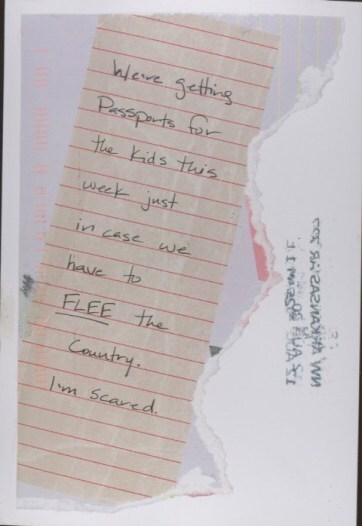 We're getting
Passports for
the kids this
week just
in case we
have to
FLEE the
Country.
I'm scared.
NW ARKANSAS AR